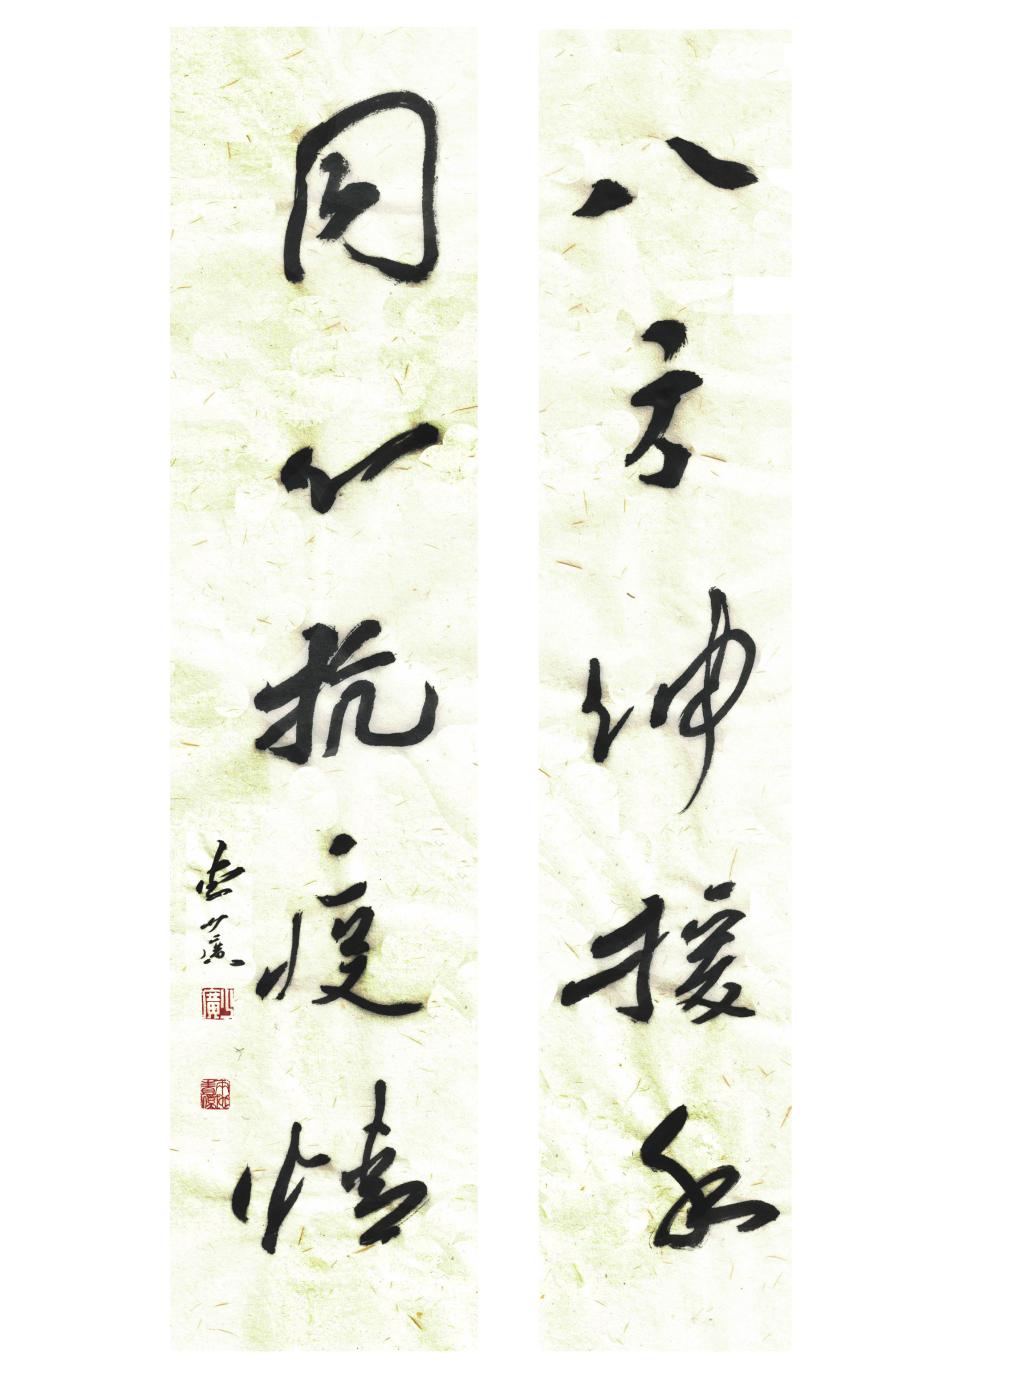 八方伸援手
同心抗疫情